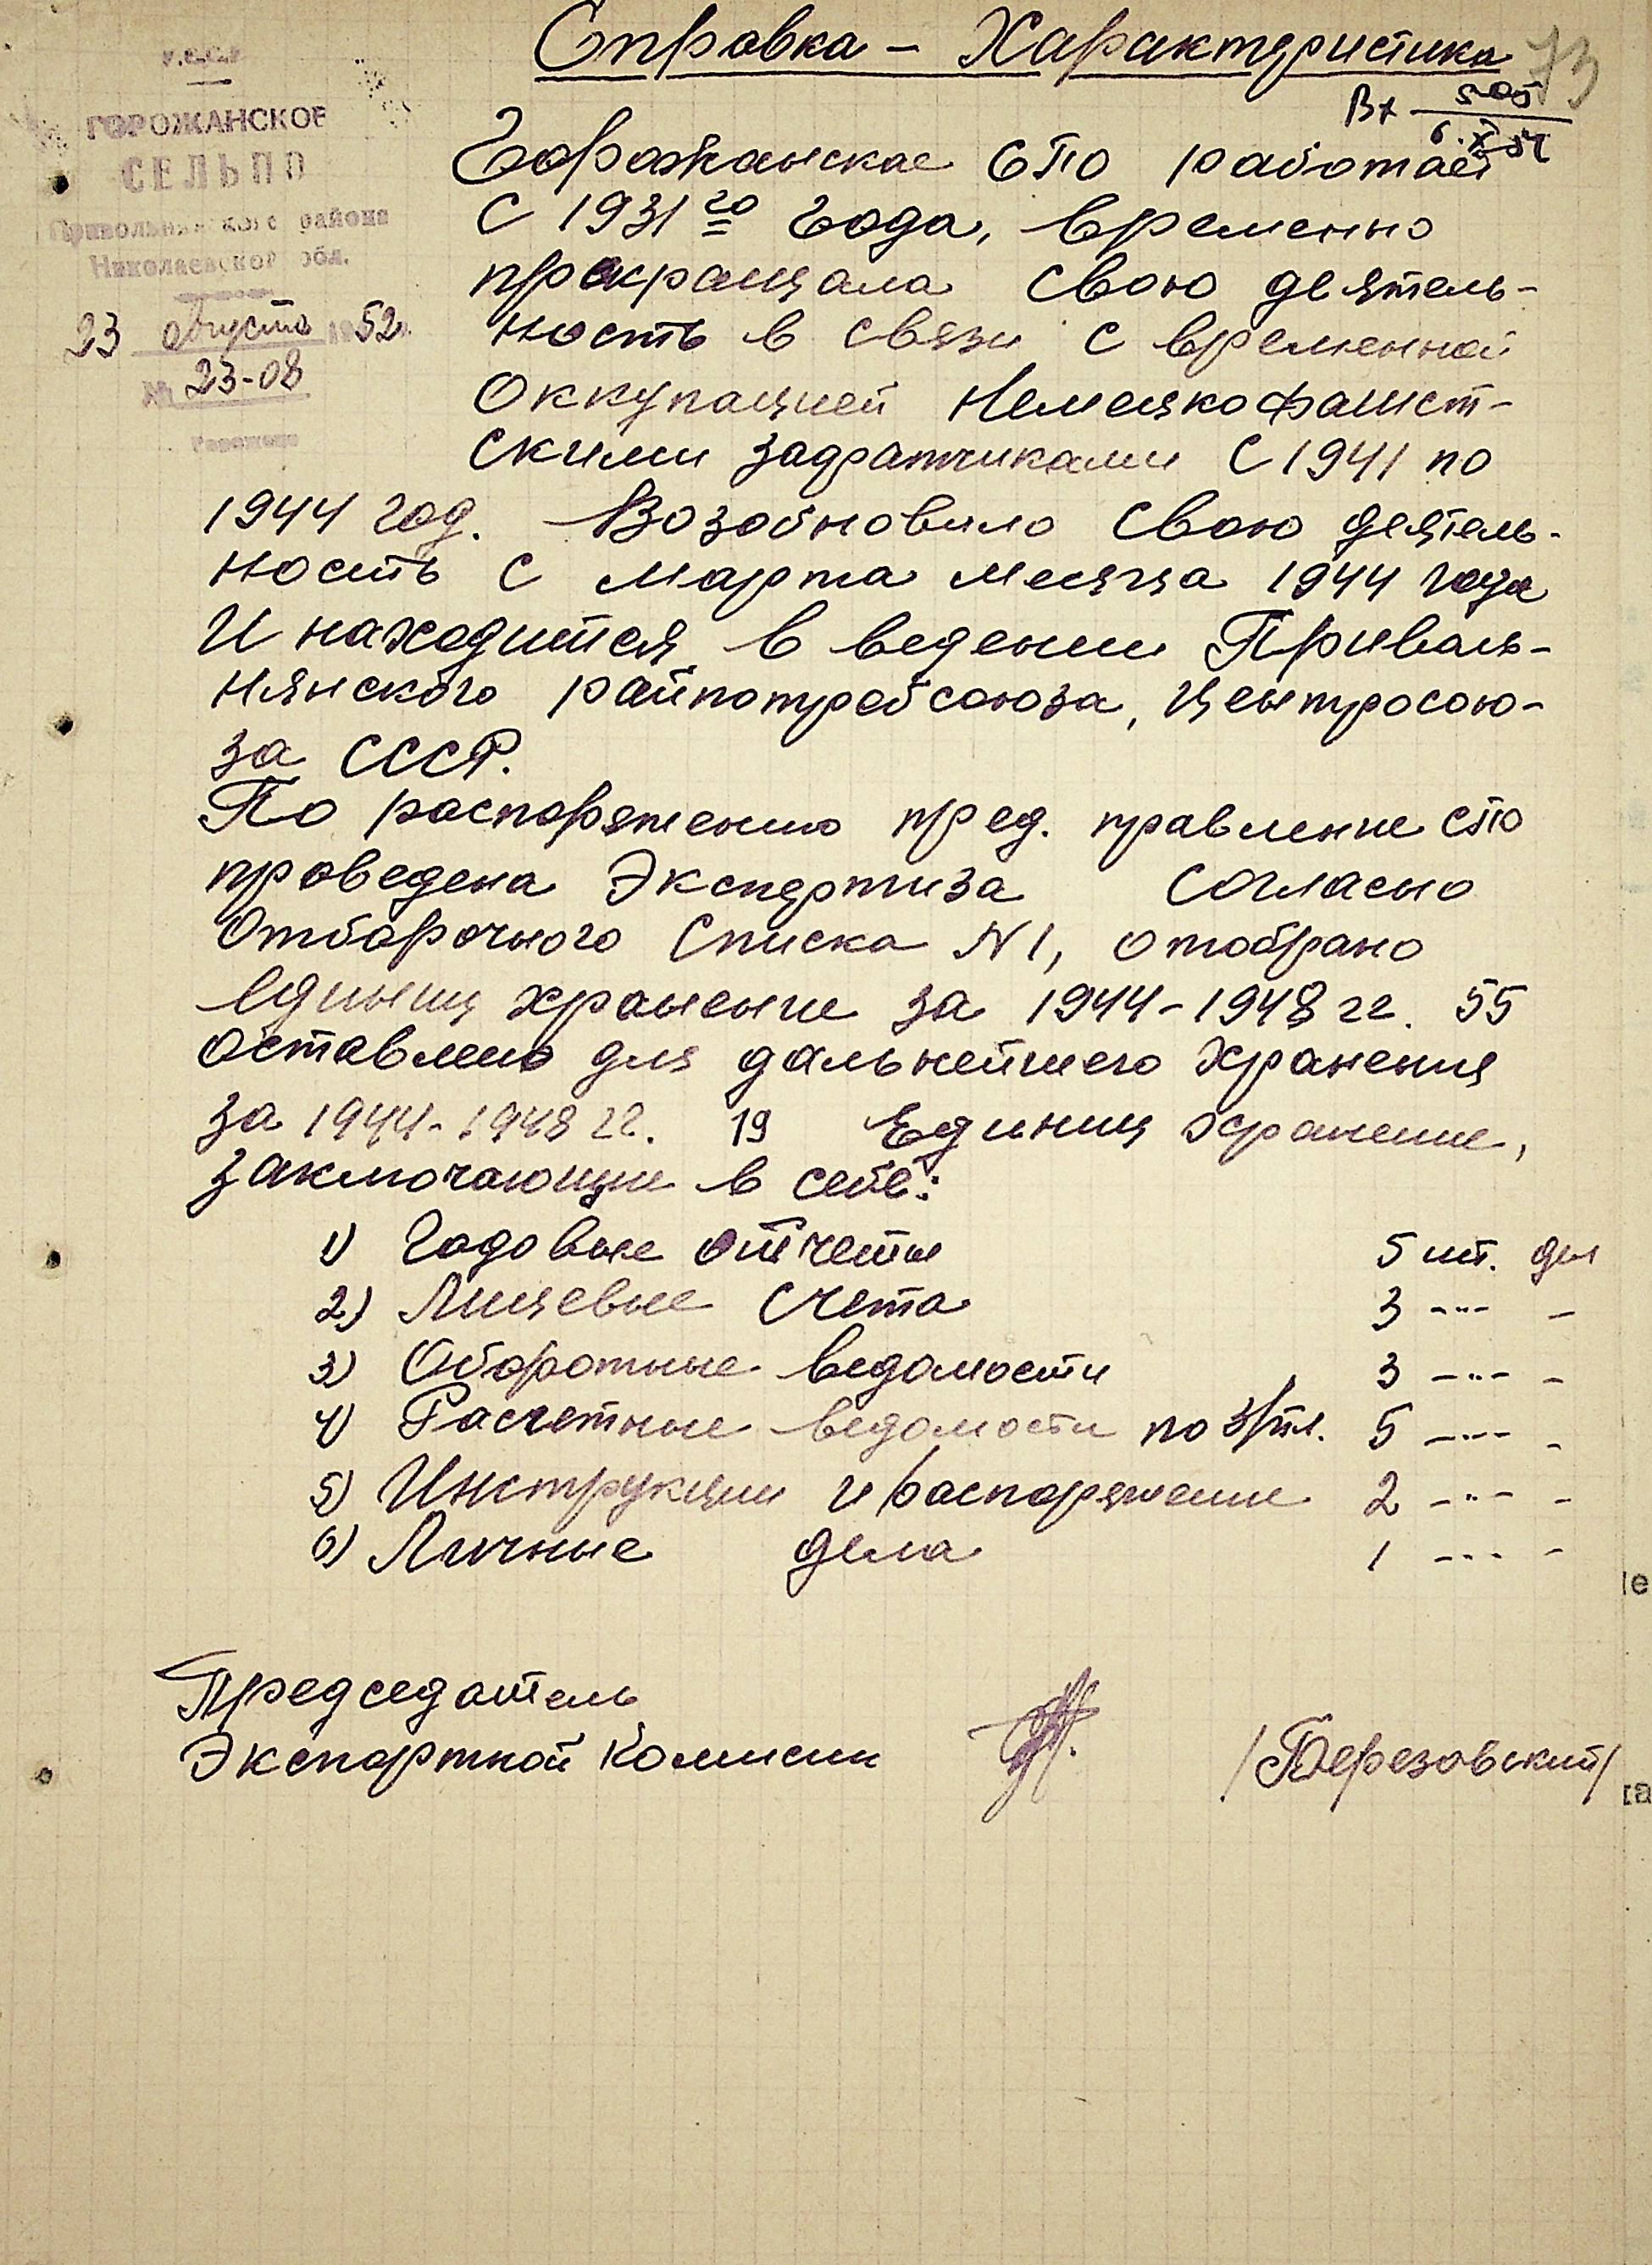 Справка - Характеристика
73
Вх 505
6.X 52
У.С.С.Р
ГОРОЖАНСКОЕ
СЕЛЬПО
Привольнянского района
Николаевской обл.
23 августа 1952г.
№ 23-08
Горожанское СПО работает
с 1931го года, временно
прекращала свою деятель-
ность в связи с временной
Оккупацией Немецкофашист-
скими захватчиками с 1941 по
1944 год. Возобновило свою деятель-
ность с марта месяца 1944 года
И находится в ведении Приволь-
нянского райпотребсоюза, Центросою-
за СССР.
По распоряжению пред. правление СПО
проведена Экспертиза Согласно
Отборочного Списка N 1, отобрано
единиц хранение за 1944-1948 гг. 55
Оставлено для дальнейшего хранения
за 1944-1948 гг. 19 Единиц хранение,
заключающие в себе:
1) Годовые отчеты 5 шт. дел
2) Лицевые счета 3 -"- -
3) Оборотные ведомости 3 -"- -
4) Расчетные ведомости по з/пл. 5 -"- -
5) Инструкции и распоряжение 2 -"- -
6) Личные дела 1 -"- -
Председатель
Экспортной комиссии /Березовский/